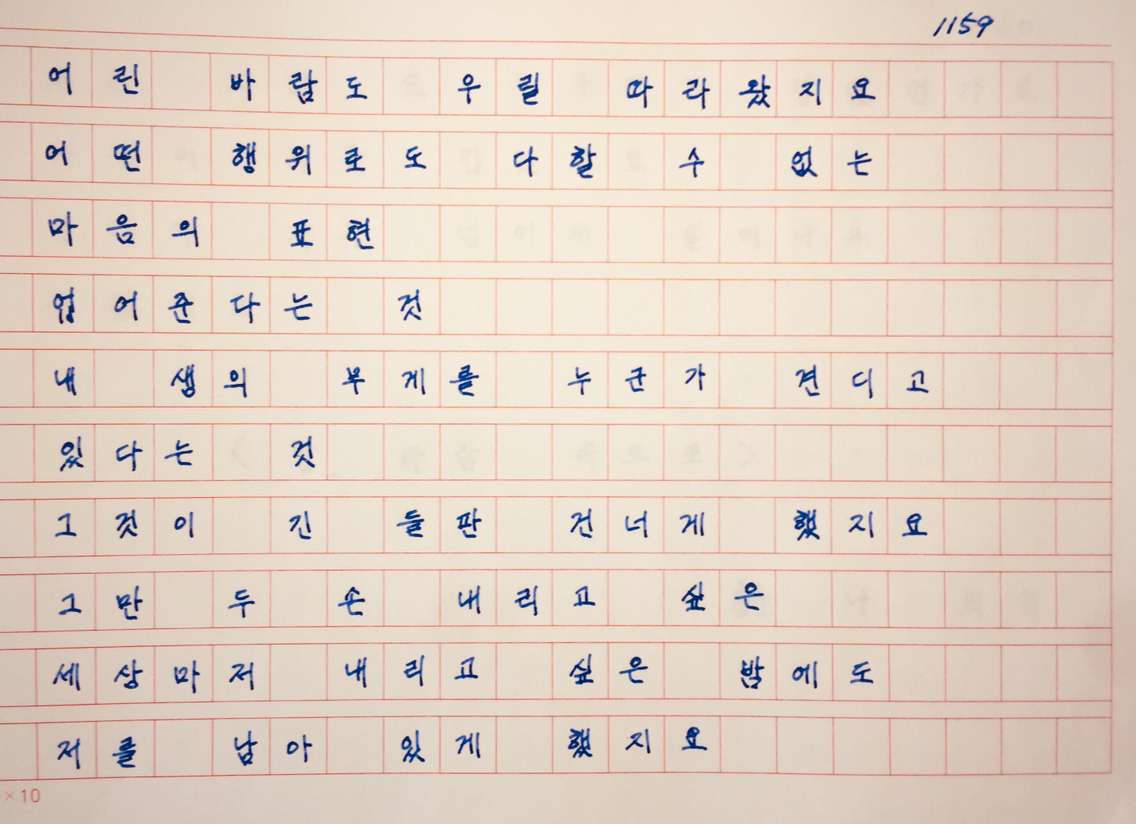 1159
어린 바람도 우릴 따라왔지요
어떤 행위로도 다할 수 없는
마음의 표현
업어준다는 것
내 생의 무게를 누군가 견디고
있다는 것
그것이 긴 들판 건너게 했지요
그만 두 손 내리고 싶은
세상마저 내리고 싶은 밤에도
저를 남아 있게 했지요
×10